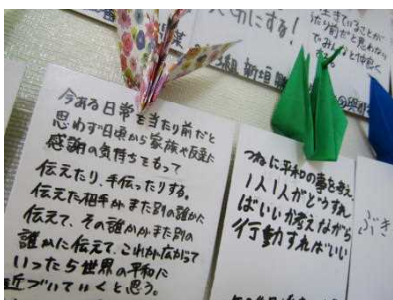 今ある日常を当たり前だと
思わず日頃から家族や友達に
感謝の気持ちをもって
伝えたり、手伝ったりする。
伝えた相手がまた別の誰かに
伝えて、その誰かがまた別の
誰かに伝えて、これが広がって
いったら世界の平和に
近づいていくと思う。
つねに平和の事を考え、
1人1人がどうすれ
ばいいか考えながら
行動すればいい
切にする!
生きていることが
たり前だと思わない
ぶき